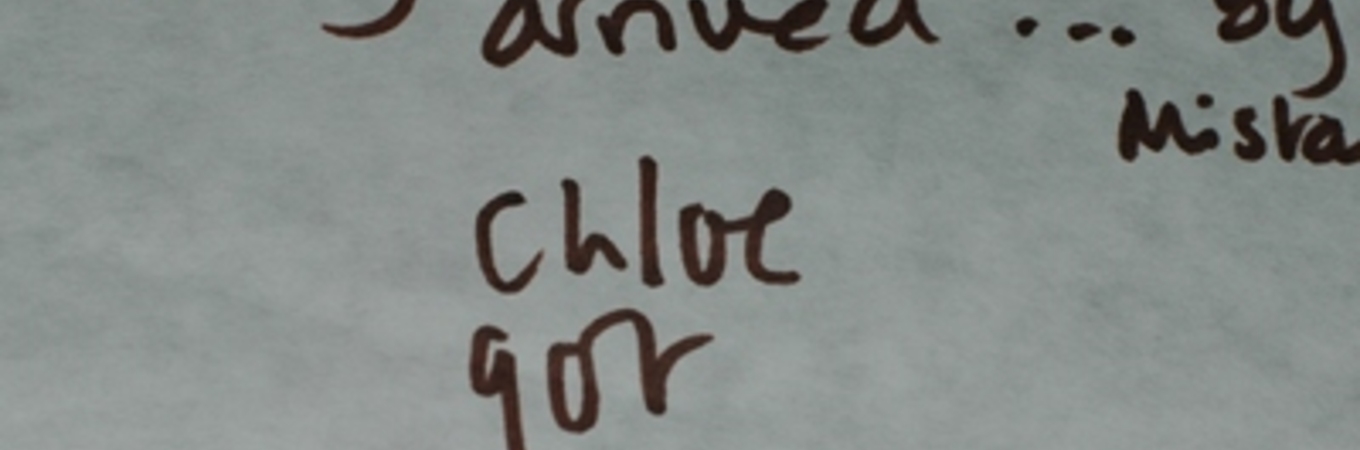 arrived ... by
Mista
Chloe
got